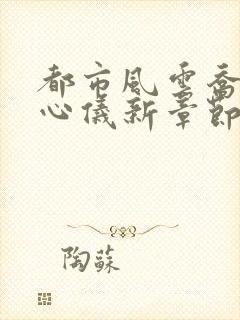 都市風雲喬
心儀新章節
陶蘇